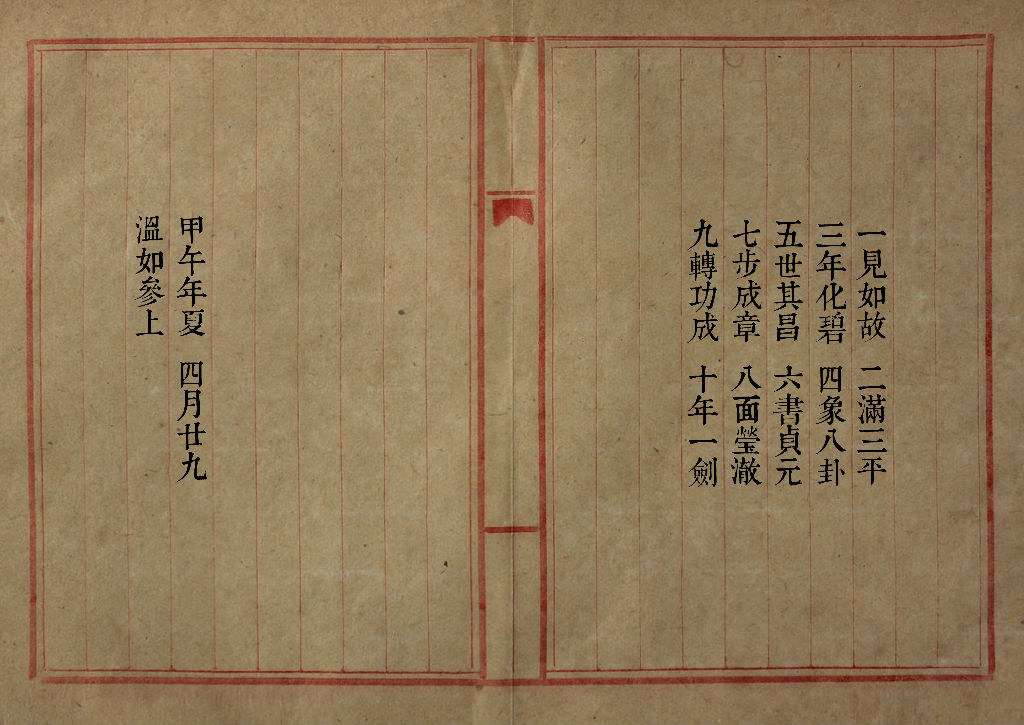 一見如故　二滿三平
三年化碧　四象八卦
五世其昌　六書貞元
七步成章　八面瑩澈
九轉功成　十年一劍
甲午年夏　四月廿九
溫如參上